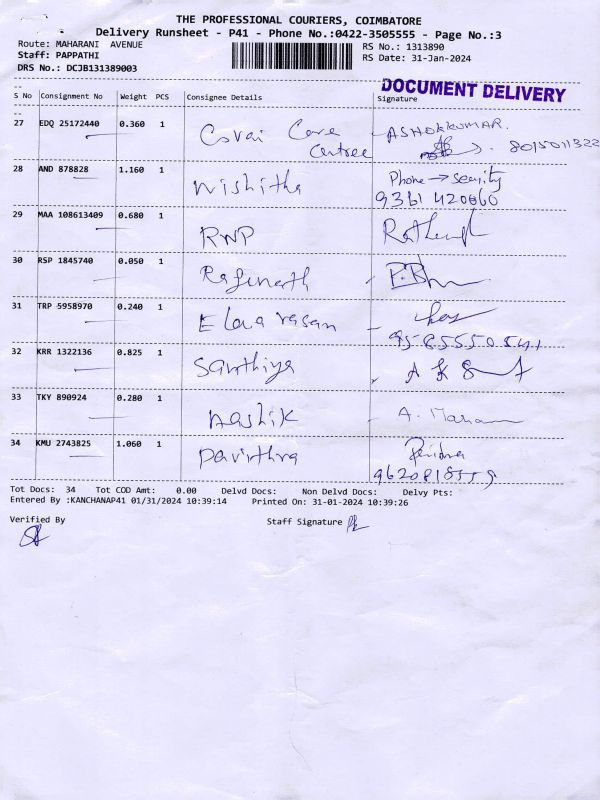 THE PROFESSIONAL COURIERS, COIMBATORE
Delivery Runsheet - P41 - Phone No.:0422-3505555 - Page No.:3
Route: MAHARANI AVENUE
RS No.: 1313890
Staff: PAPPATHI
RS Date: 31-Jan-2024
DRS No.: DCJB131389003
DOCUMENT DELIVERY
S No Consignment No Weight PCS Consignee Details Signature
27 EDQ 25172440 0.360 1 Covai Care ASHOKKUMAR.
Centree 8015011322
28 AND 878828 1.160 1 Nishitha Phone → Security
9361 420060
29 MAA 108613409 0.680 1 RNP
30 RSP 1845740 0.050 1
31 TRP 5958970 0.240 1 Elavarasan
9585550541
32 KRR 1322136 0.825 1 Santhiya
33 TKY 890924 0.280 1 Nashik
34 KMU 2743825 1.060 1 Pavithra
9620818559
Tot Docs: 34 Tot COD Amt: 0.00 Delvd Docs: Non Delvd Docs: Delvy Pts:
Entered By :KANCHANAP41 01/31/2024 10:39:14 Printed On: 31-01-2024 10:39:26
Verified By Staff Signature